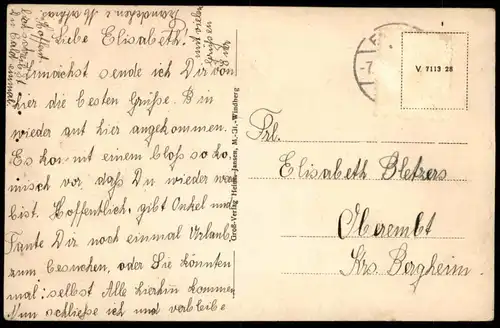 Liebe Elisabeth!
Zunächst sende ich Dir von
hier die besten Grüße. Bin
wieder gut hier angekommen.
Es kommt einem bloß so ko-
misch vor daß Du wieder weg
bist. Hoffentlich, gibt Onkel und
Tante Dir noch einmal Urlaub
zum besuchen, oder Sie könnten
mal selbst Alle hierhin kommen.
Nun schließe ich und verbleibe
mit vielen
Grüßen
Hoffent-
lich schreibst
Du bald einmal.
Groß-Verlag Heinr. Jansen, M.-Gl., Windberg
V. 7113 28
Frl.
Elisabeth Bletzers
Oberembt
Krs. Bergheim